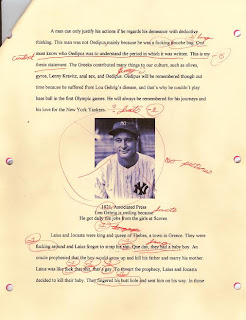 A man can only justify his actions if he regards his demeanor with deductive
thinking. This man was not Oedipus, mainly because he was a fucking douche bag. One
must know who Oedipus was to understand the period in which it was written. This is my
thesis statement. The Greeks contributed many things to our culture, such as olives,
gyros, Lenny Kravitz, anal sex, and Oedipus. Oedipus will be remembered though out
time because he suffered from Lou Gehrig's disease, and that's why he couldn't play
base ball in the first Olympic games. He will always be remembered for his journeys and
his love for the New York Yankees.
1921, Associated Press
Lou Gehrig is smiling because
He get daily hot jobs from the girls at Scores
Laius and Jocasta were king and queen of Thebes, a town in Greece. They were
fucking around and Laius forgot to wrap his Oue doo, they had a baby boy. An
oracle prophesied that the boy would grow up and kill his father and marry his mother.
Laius was like fuck that shit, that's gay. To thwart the prophecy, Laius and Jocasta
decided to kill their baby. They fingered his butt hole and sent him on his way. In those